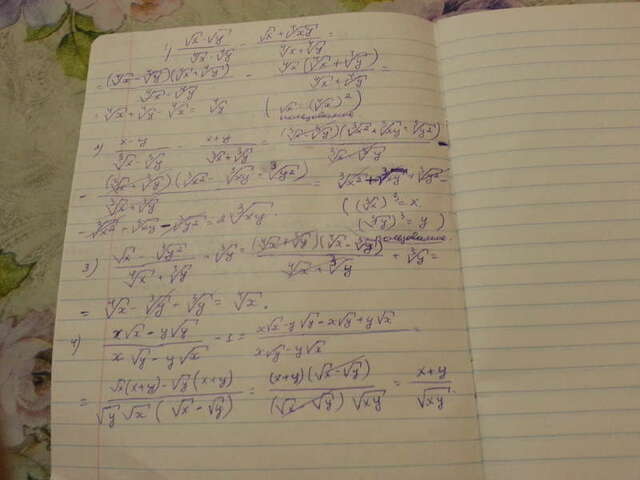 1) (√x - √y)/(⁴√x - ⁴√y) - (√x + ⁴√xy)/(⁴√x + ⁴√y) =
= (⁴√x - ⁴√y)(⁴√x + ⁴√y)/(⁴√x - ⁴√y) - ⁴√x(⁴√x + ⁴√y)/(⁴√x + ⁴√y) =
= ⁴√x + ⁴√y - ⁴√x = ⁴√y (√x = (⁴√x)²)
2) (x - y)/(³√x - ³√y) - (x + y)/(³√x + ³√y) = (³√x - ³√y)(³√x² + ³√xy + ³√y²)/(³√x - ³√y) -
- (³√x + ³√y)(³√x² - ³√xy + ³√y²)/(³√x + ³√y) = ³√x² + ³√xy + ³√y² -
- ³√x² + ³√xy - ³√y² = 2 ³√xy. ((³√x)³ = x.
(³√y)³ = y)
3) (√x - ³√y²)/(⁴√x + ³√y) + ³√y = (⁴√x + ³√y)(⁴√x - ³√y)/(⁴√x + ³√y) + ³√y =
= ⁴√x - ³√y + ³√y = ⁴√x.
4) (x√x - y√y)/(x√y - y√x) - 1 = (x√x - y√y - x√y + y√x)/(x√y - y√x) =
= (√x(x+y) - √y(x+y))/(√y √x (√x - √y)) = (x+y)(√x - √y)/((√x - √y) √xy) = (x+y)/√xy.